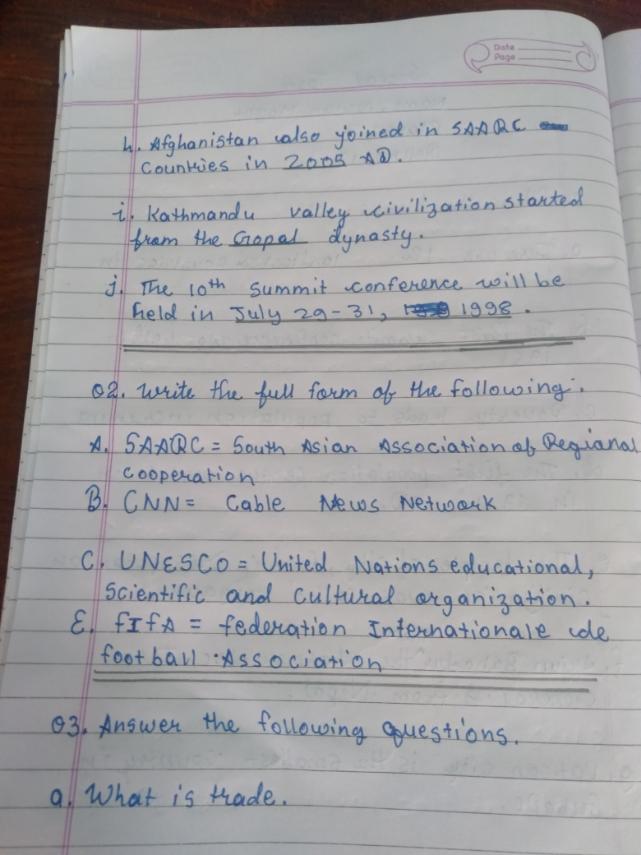 Date
Page
h. Afghanistan also joined in SAARC
Countries in 2005 AD.
i. Kathmandu valley civilization started
from the Gopal dynasty.
j. The 10th Summit conference will be
held in July 29-31, 1998.
Q2. Write the full form of the following:.
A. SAARC = South Asian Association of Regianal
cooperation
B. CNN = Cable News Network
C. UNESCO = United Nations educational,
Scientific and Cultural organization.
E. fIfA = federation Internationale de
football Association
Q3. Answer the following questions.
a. What is trade.